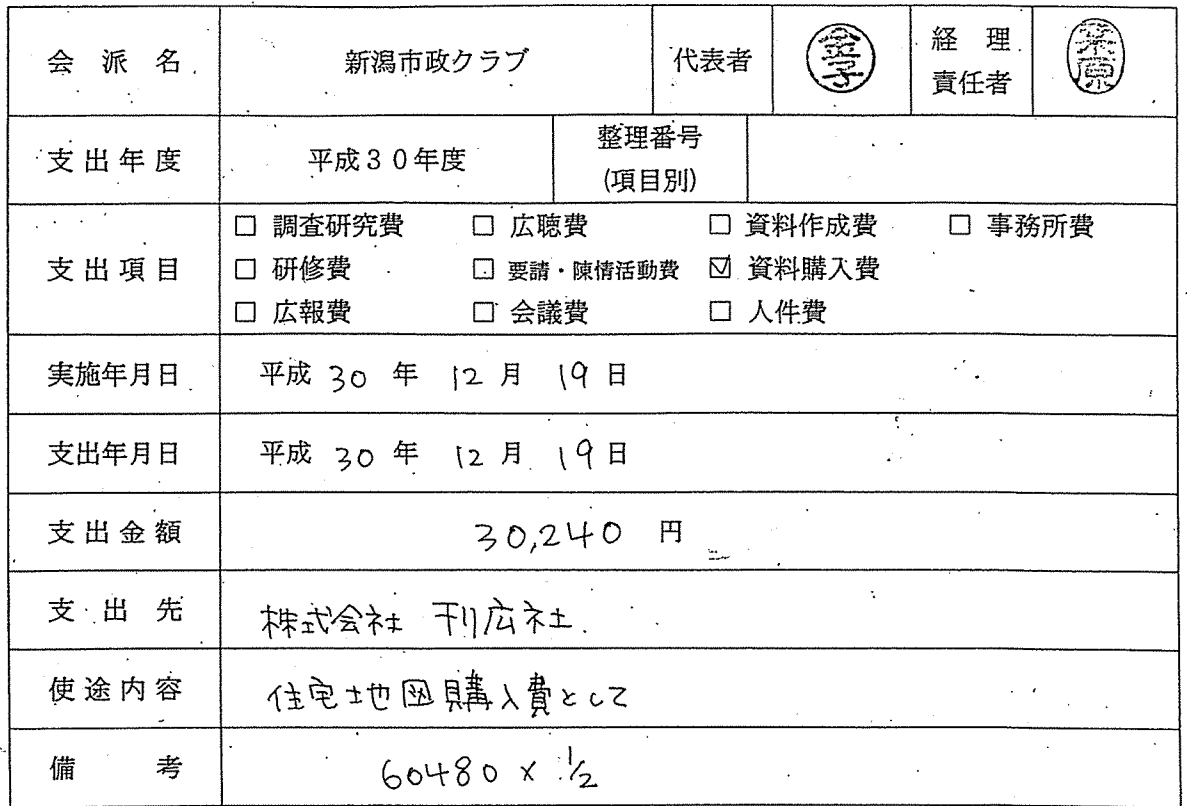 会派名 新潟市政クラブ 代表者 金子 経理責任者
支出年度 平成30年度 整理番号(項目別)
支出項目
□ 調査研究費 □ 広聴費 □ 資料作成費 □ 事務所費
□ 研修費 □ 要請・陳情活動費 ☑ 資料購入費
□ 広報費 □ 会議費 □ 人件費
実施年月日 平成 30 年 12 月 19 日
支出年月日 平成 30 年 12 月 19 日
支出金額 30,240 円
支出先 株式会社 刊広社
使途内容 住宅地図購入費として
備考 60480 × 1/2